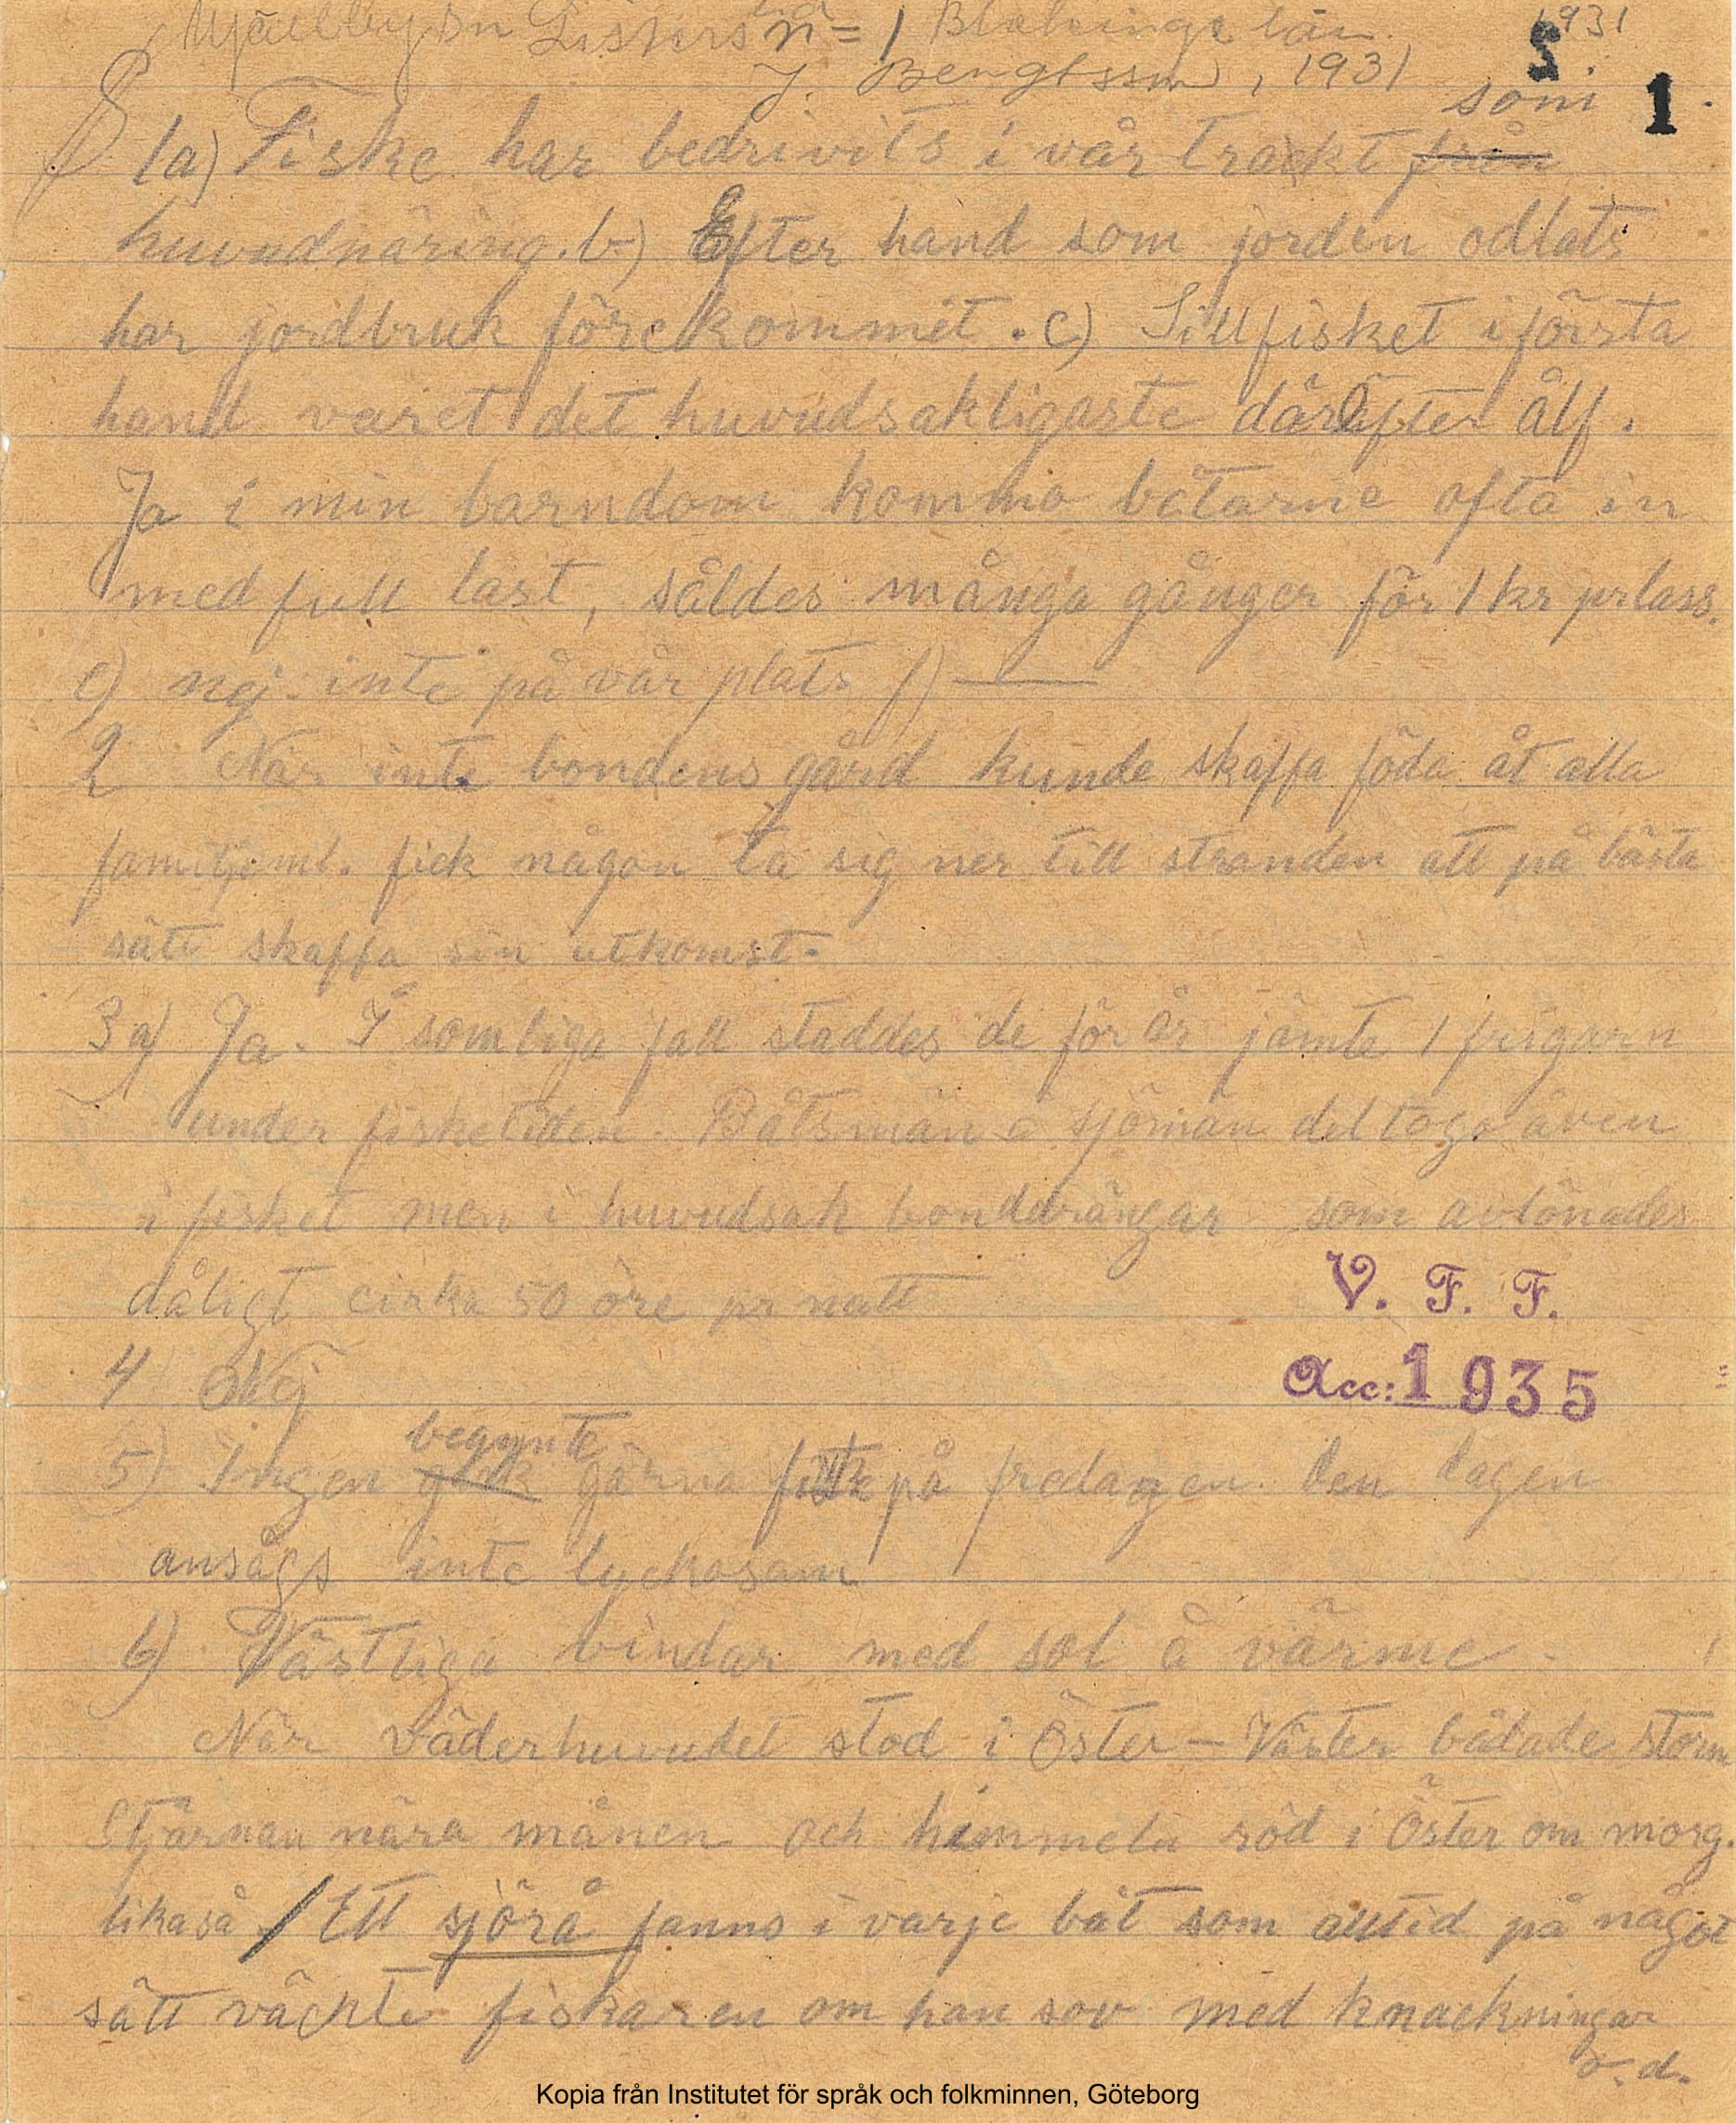 Mjällby sn Listers hd n=1 Blekinge län. 1931
J. Bengtsson, 1931 S.
som 1
1a) Fiske har bedrivits i vår trakt från
huvudnäring. b) Efter hand som jorden odlats
har jordbruk förekommit. c) Sillfisket i första
hand varet det huvudsakligaste därefter ålf.
Ja i min barndom kommo båtarne ofta in
med full last, såldes många gånger för 1 kr pr lass.
e) nej inte på vår plats f) —
2 När inte bondens gård kunde skaffa föda åt alla
familjeml. fick någon ta sig ner till stranden att på bästa
sätt skaffa sin utkomst.
3 a) Ja. I somliga fall staddes de för år jämte 1 frigarn
under fisketiden. Båtsmän o sjömän deltogo även
i fisket men i huvudsak bonddrängar som avlönades
dåligt cirka 50 öre pr natt
V. F. F.
4 Nej
Acc: 1935
begynte
5) Ingen gick gärna fiske på fredagen. Den dagen
ansågs inte lyckosam
6) Västliga vindar med sol å värme.
När väderhuvudet stod i Öster – Väster bådade storm
Stjärnan nära månen och himmeln röd i Öster om morg.
likaså / Ett sjörå fanns i varje båt som alltid på något
sätt väckte fiskaren om han sov med knackningar
v. d.
Kopia från Institutet för språk och folkminnen, Göteborg